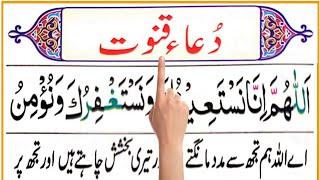 دُعاءِ قنوت
اَللّٰهُمَّ اِنَّا نَسْتَعِيْنُكَ وَنَسْتَغْفِرُكَ وَنُؤْمِنُ
اے اللہ ہم تجھ سے مدد مانگتے اور تیری بخشش چاہتے ہیں اور تجھ پر